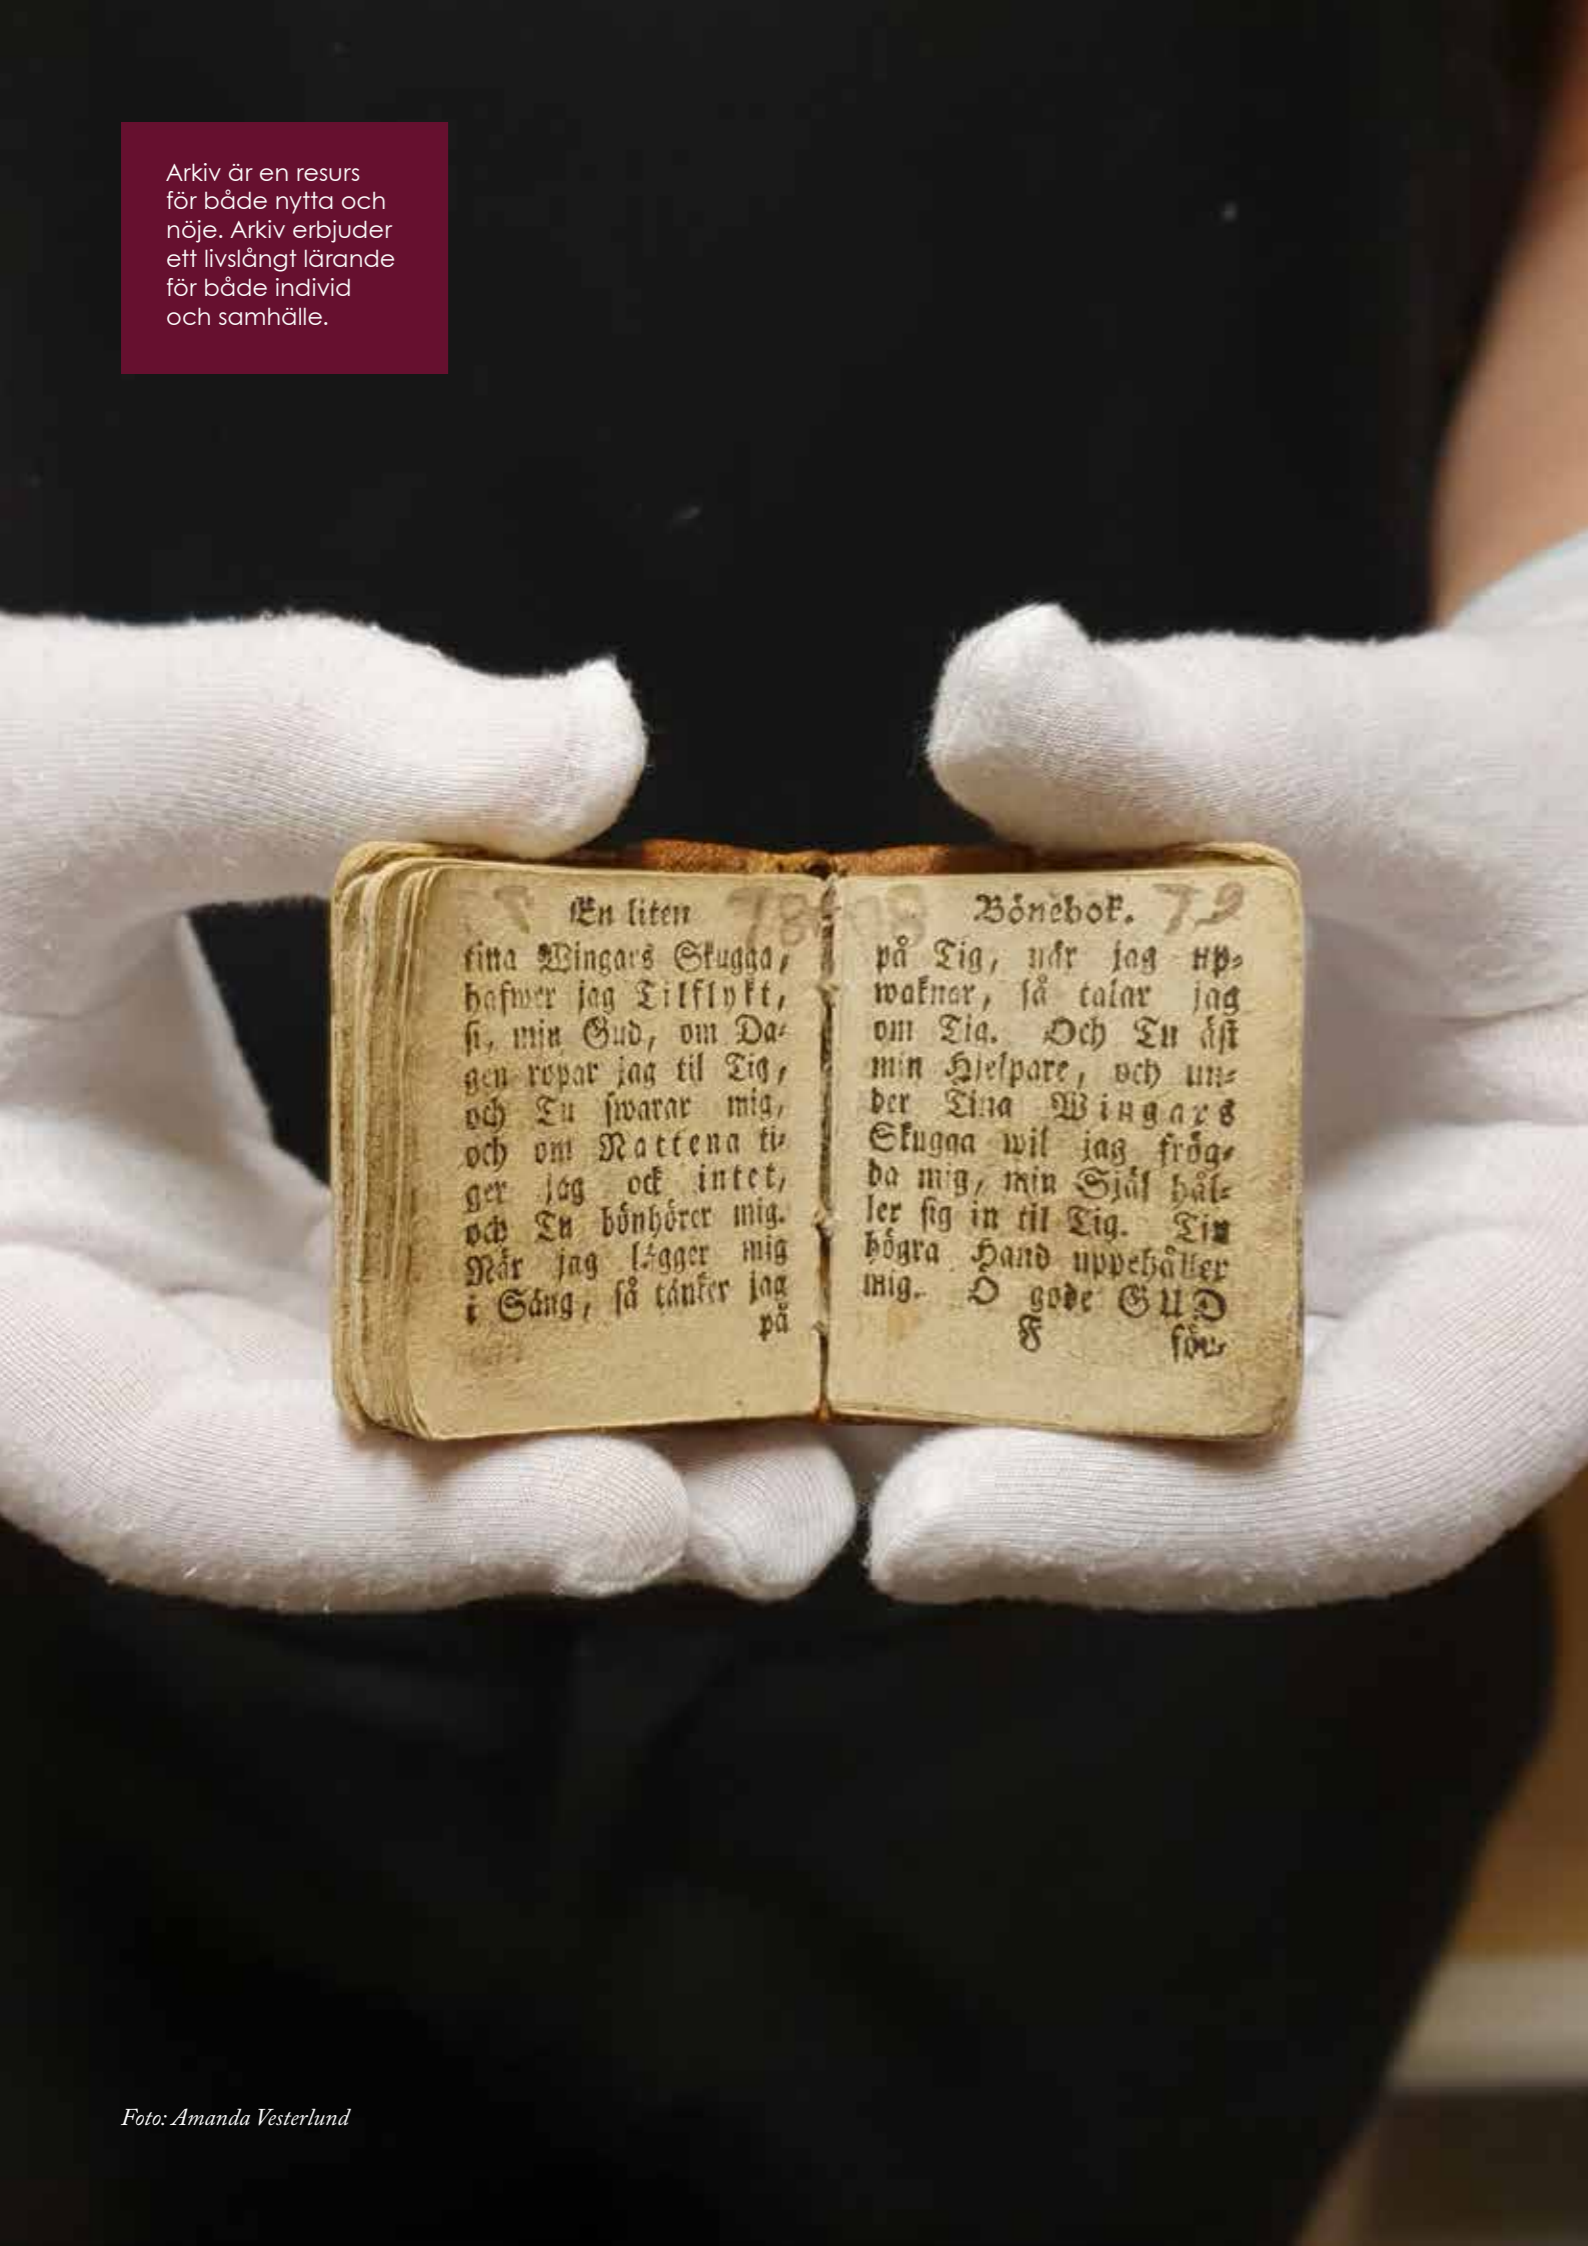 Arkiv är en resurs
för både nytta och
nöje. Arkiv erbjuder
ett livslångt lärande
för både individ
och samhälle.
En liten 78
tina Wingars Skugga,
hafwer jag Tilflykt,
si, min Gud, om Da-
gen ropar jag til Tig,
och Tu swarar mig,
och om Nattena ti-
ger jag ock intet,
och Tu bönhörer mig.
När jag lägger mig
i Säng, så tänker jag
på
Bönebok. 79
på Tig, när jag up-
waknar, så talar jag
om Tig. Och Tu äst
min Hjelpare, och un-
der Tina Wingars
Skugga wil jag frög-
da mig, min Själ hål-
ler sig in til Tig. Tin
högra Hand uppehåller
mig. O gode GUD
F för-
Foto: Amanda Vesterlund